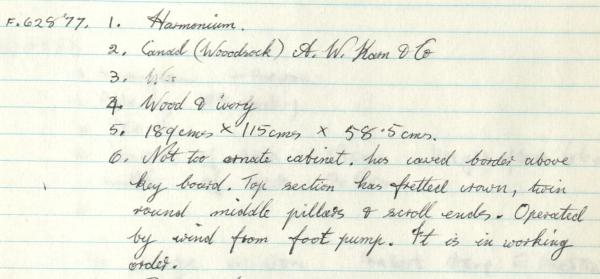 F.628'77. 1. Harmonium.
2. Canad (Wooodsock) A. W. Karn & Co
3. Wo
4. Wood & ivory
5. 189cms × 115cms × 58.5cms.
6. Not too ornate cabinet. has caved border above
key board. Top section has fretted crown, twin
round middle pillars & scroll ends. Operated
by wind from foot pump. It is in working
order.